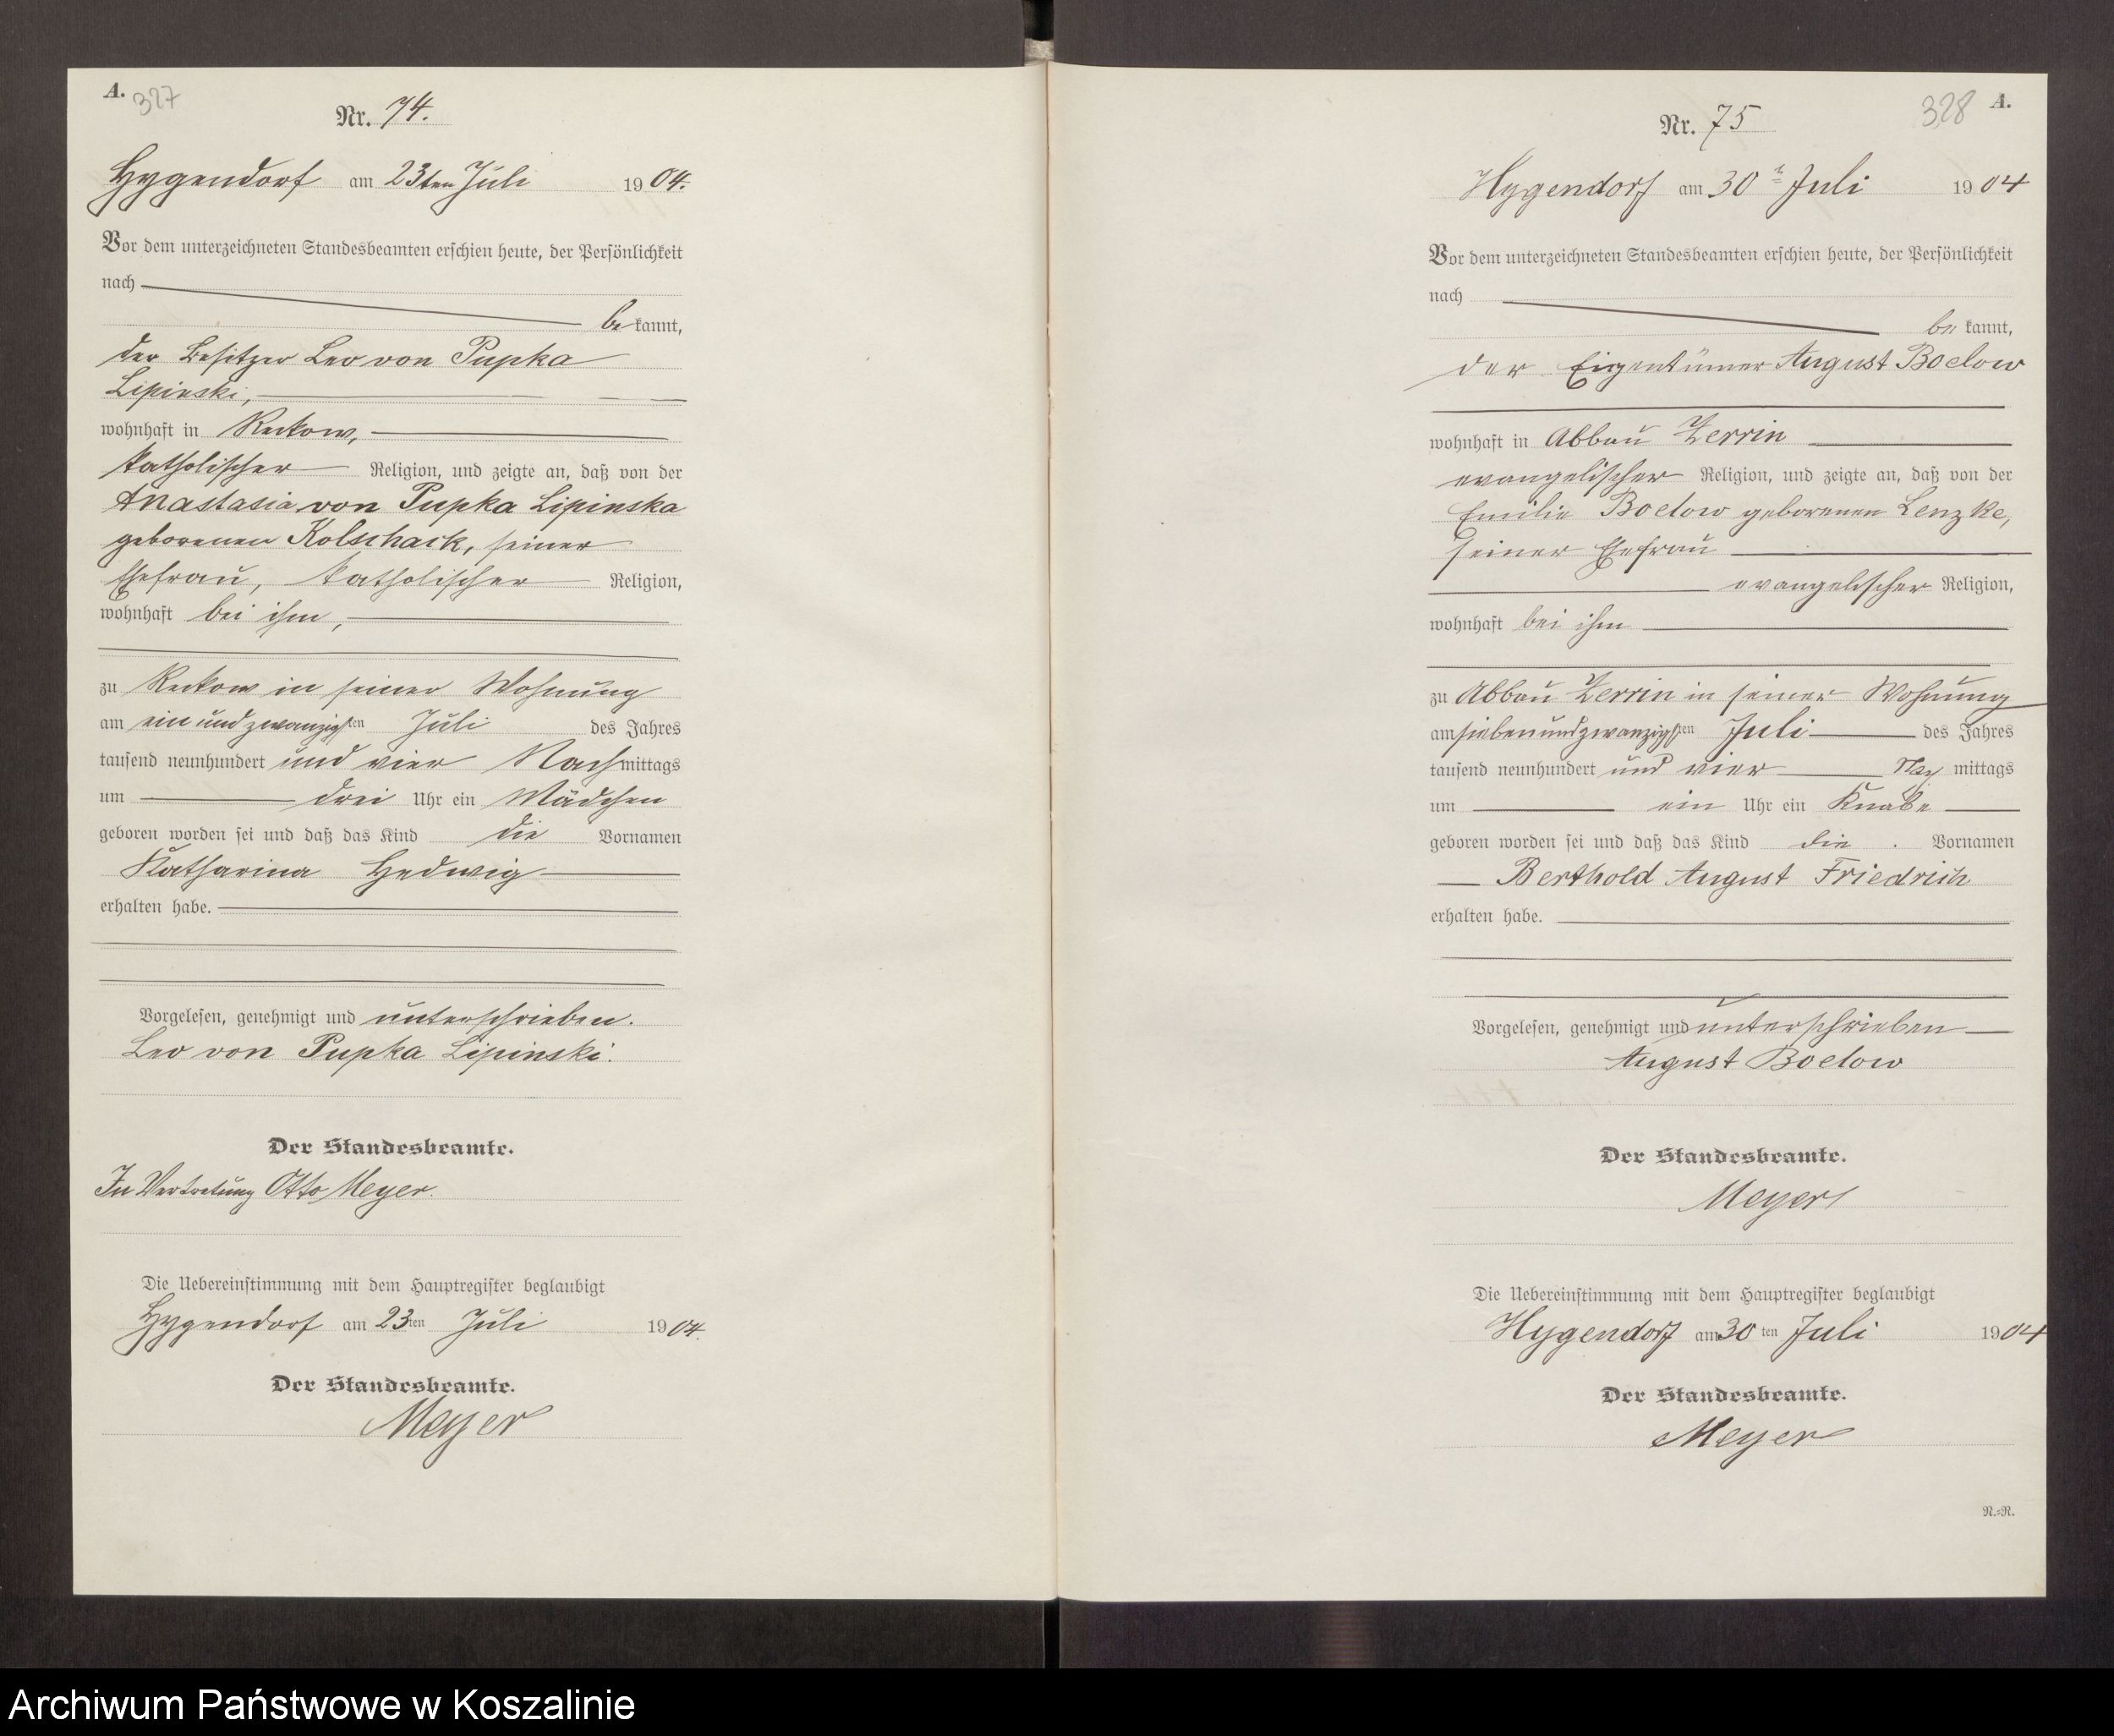 A. 327
Nr. 74.
Hygendorf am 23ten Juli 1904.
Vor dem unterzeichneten Standesbeamten erschien heute, der Persönlichkeit
nach
be kannt,
der Besitzer Leo von Pupka
Lipinski,
wohnhaft in Reckow,
katholischer Religion, und zeigte an, daß von der
Anastasia von Pupka Lipinska
geborenen Kolschack, seiner
Ehefrau, katholischer Religion,
wohnhaft bei ihm,
zu Reckow in seiner Wohnung
am ein und zwanzigsten Juli des Jahres
tausend neunhundert und vier Nachmittags
um drei Uhr ein Mädchen
geboren worden sei und daß das Kind die Vornamen
Katharina Hedwig
erhalten habe.
Vorgelesen, genehmigt und unterschrieben.
Leo von Pupka Lipinski.
Der Standesbeamte.
In Vertretung Otto Meyer.
Die Uebereinstimmung mit dem Hauptregister beglaubigt
Hygendorf am 23ten Juli 1904.
Der Standesbeamte.
Meyer
328 A.
Nr. 75
Hygendorf am 30 Juli 1904
Vor dem unterzeichneten Standesbeamten erschien heute, der Persönlichkeit
nach
be kannt,
der Eigentümer August Boelow
wohnhaft in Abbau Zerrin
evangelischer Religion, und zeigte an, daß von der
Emilie Boelow geborenen Lenzke,
seiner Ehefrau
evangelischer Religion,
wohnhaft bei ihm
zu Abbau Zerrin in seiner Wohnung
am siebenundzwanzigsten Juli des Jahres
tausend neunhundert und vier mittags
um ein Uhr ein Knabe
geboren worden sei und daß das Kind die Vornamen
Berthold August Friedrich
erhalten habe.
Vorgelesen, genehmigt und unterschrieben
August Boelow
Der Standesbeamte.
Meyer
Die Uebereinstimmung mit dem Hauptregister beglaubigt
Hygendorf am 30ten Juli 1904
Der Standesbeamte.
Meyer
N.=R.
Archiwum Państwowe w Koszalinie